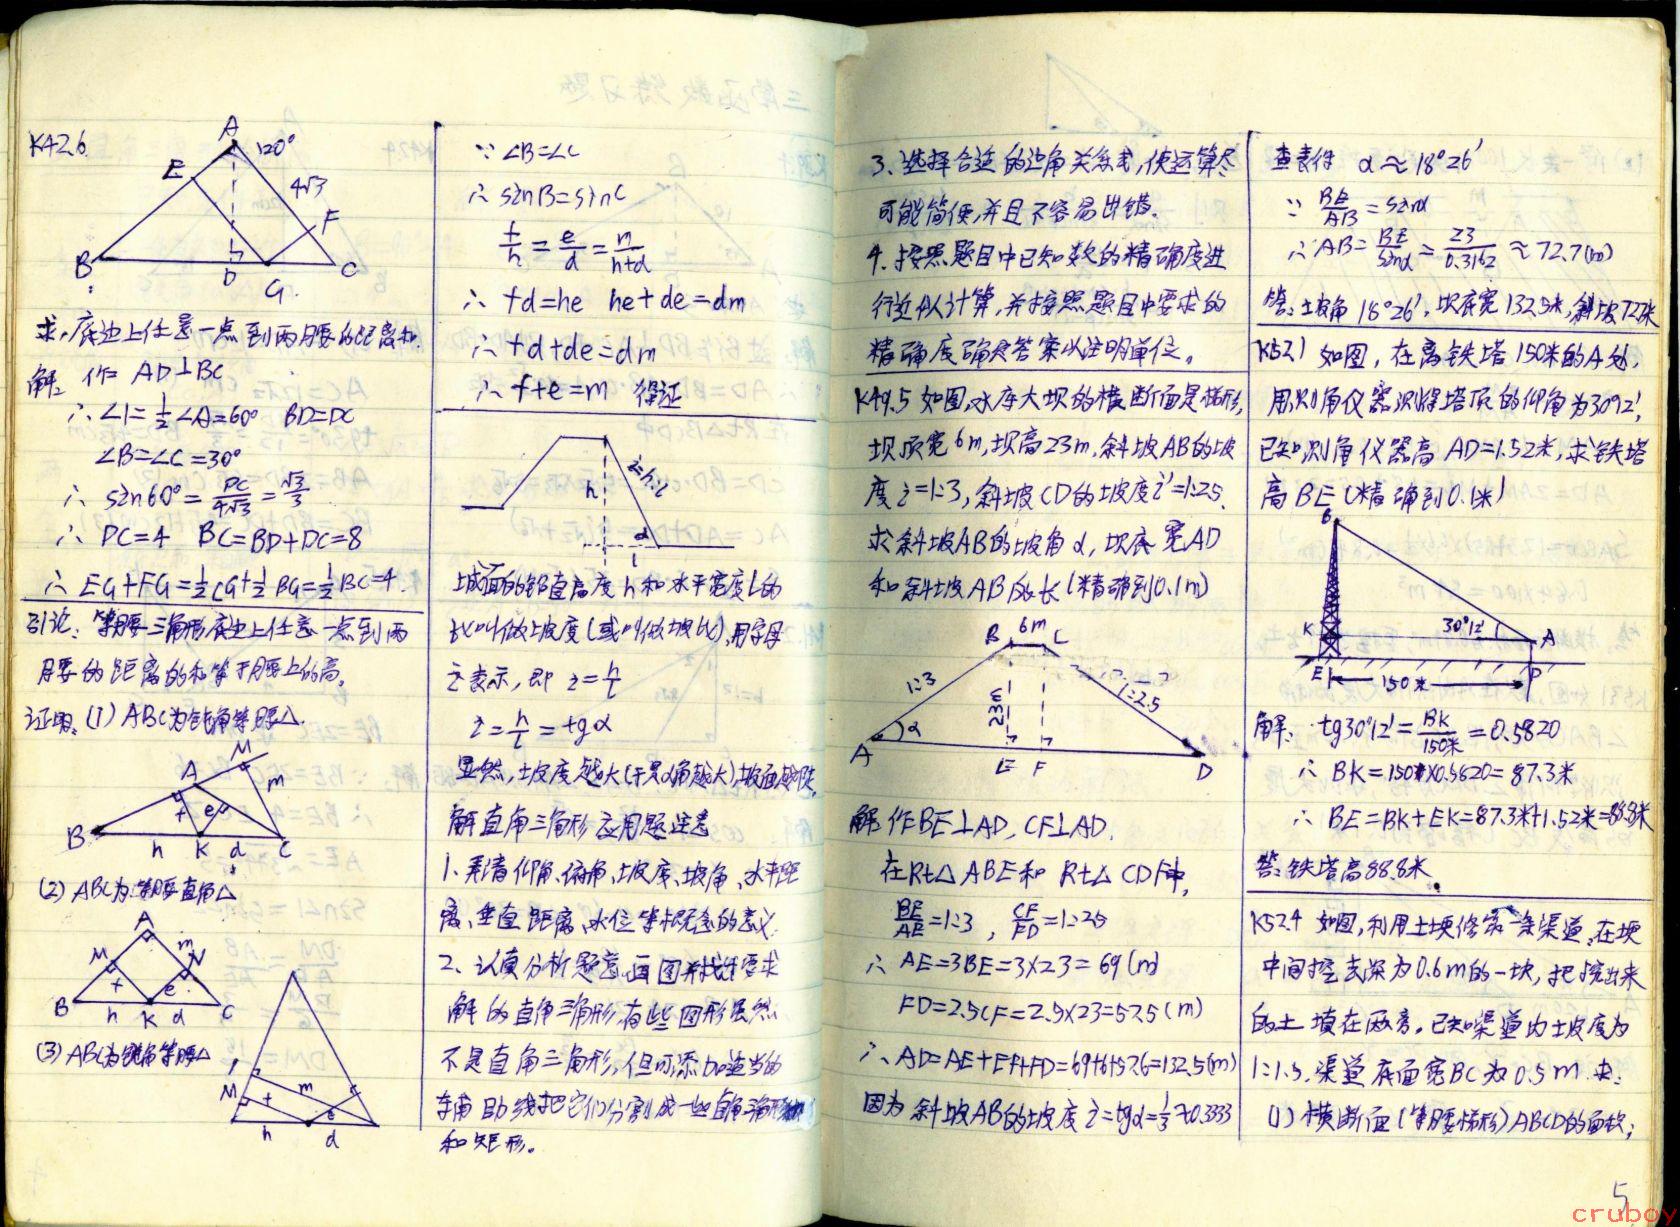 K42.6
A
120°
E
4√3
F
B
D
G
C
求,底边上任意一点到两腰的距离和.
解: 作 AD⊥BC
∴ ∠1=½∠A=60° BD=DC
∠B=∠C=30°
∴ sin60°=DC/4√3=√3/3
∴ DC=4 BC=BD+DC=8
∴ EG+FG=½CG+½BG=½BC=4.
引论: 等腰三角形底边上任意一点到两
腰的距离的和等于腰上的高。
证明: (1) ABC为钝角等腰△.
M
A
m
f
e
B
h
K
d
C
(2) ABC为等腰直角△
A
M
m
N
f
e
B
h
K
d
C
(3) ABC为锐角等腰△
M
m
f
e
h
d
∵ ∠B=∠C
∴ sinB=sinC
f/h=e/d=m/(h+d)
∴ fd=he he+de=dm
∴ fd+de=dm
∴ f+e=m 得证
h
i=h:l
α
l
坡面的铅直高度h和水平宽度l的
比叫做坡度(或叫做坡比),用字母
i表示,即 i=h/l
i=h/l=tgα
显然,坡度越大(于是α角越大)坡面越陡.
解直角三角形应用题注意
1、弄清仰角、俯角、坡度、坡角、水平距
离、垂直距离、水位等概念的意义.
2、认真分析题意,画图并找出要求
解的直角三角形,有些图形虽然
不是直角三角形,但可添加适当的
辅助线把它们分割成一些直角三角形
和矩形。
3、选择合适的边角关系式,使运算尽
可能简便,并且不容易出错.
4、按照题目中已知数的精确度进
行近似计算,并按照题目中要求的
精确度确定答案以注明单位。
K49.5 如图,水库大坝的横断面是梯形,
坝顶宽6m,坝高23m,斜坡AB的坡
度i=1:3,斜坡CD的坡度i'=1:2.5.
求斜坡AB的坡角α,坝底宽AD
和斜坡AB的长(精确到0.1m)
B
6m
C
1:3
23m
1:2.5
A
α
E
F
D
解 作BE⊥AD, CF⊥AD.
在Rt△ABE和 Rt△CDF中,
BE/AE=1:3 , CF/FD=1:2.5
∴ AE=3BE=3×23=69(m)
FD=2.5CF=2.5×23=57.5(m)
∴ AD=AE+EF+FD=69+6+57.6=132.5(m)
因为 斜坡AB的坡度 i=tgα=⅓≈0.3333
查表得 α≈18°26'
∵ BE/AB=sinα
∴ AB=BE/sinα=23/0.3162≈72.7(m)
答: 坡角18°26', 坝底宽132.5米, 斜坡72.7米
K52.1 如图, 在离铁塔150米的A处,
用测角仪器测得塔顶的仰角为30°12',
已知测角仪器高 AD=1.52米,求铁塔
高BE(精确到0.1米)
B
30°12'
K
A
E
150米
D
解: tg30°12'=BK/150米=0.5820
∴ BK=150米×0.5820=87.3米
∴ BE=BK+EK=87.3米+1.52米=88.8米
答: 铁塔高88.8米
K52.4 如图,利用土埂修筑一条渠道,在埂
中间挖去深为0.6m的一块,把挖出来
的土填在两旁。已知渠道内坡度为
1:1.5,渠道底面宽BC为0.5m.求:
(1)横断面(等腰梯形)ABCD的面积;
5
cruboy